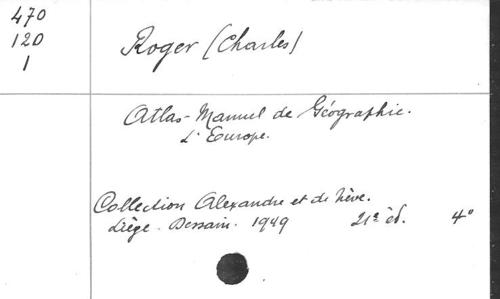 470
120
1
Roger (Charles)
Atlas-Manuel de Géographie.
L'Europe.
Collection Alexandre et de Nève.
Liège. Dessain. 1949 21e éd. 4°